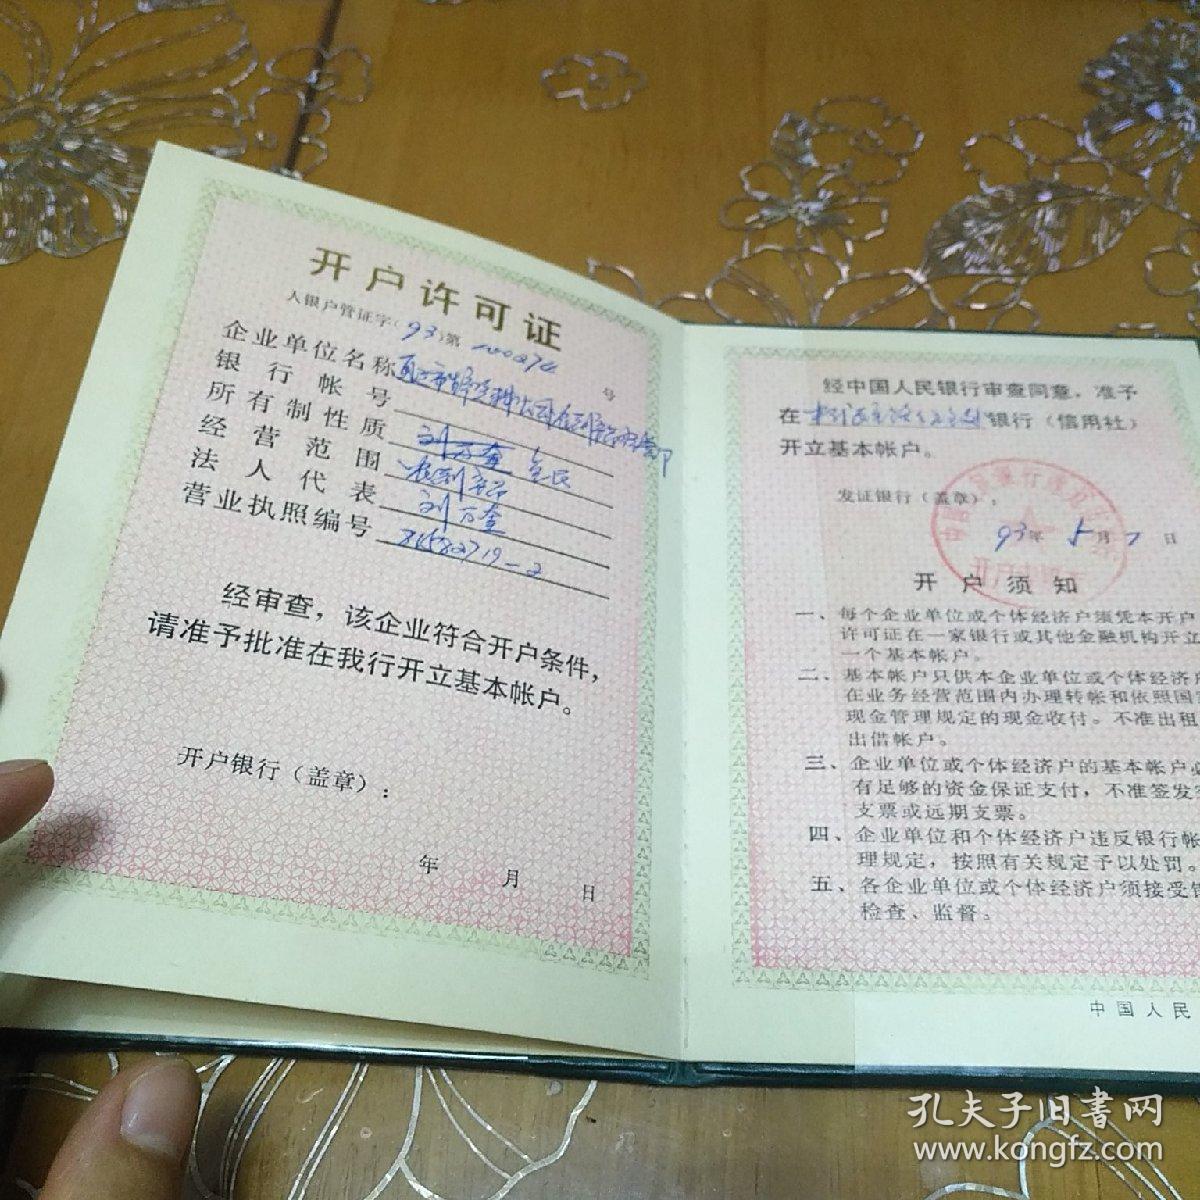 开户许可证
人银户管证字(93)第 号
企业单位名称
银行帐号
所有制性质 刘万奎
经营范围
法人代表 刘万奎
营业执照编号
经审查，该企业符合开户条件，
请准予批准在我行开立基本帐户。
开户银行（盖章）：
年 月 日
经中国人民银行审查同意，准予
在 银行（信用社）
开立基本帐户。
发证银行（盖章）：
93年 5月 7日
开户须知
一、每个企业单位或个体经济户须凭本开户
许可证在一家银行或其他金融机构开立
一个基本帐户。
二、基本帐户只供本企业单位或个体经济户
在业务经营范围内办理转帐和依照国
现金管理规定的现金收付。不准出租
出借帐户。
三、企业单位或个体经济户的基本帐户必
有足够的资金保证支付，不准签发空
支票或远期支票。
四、企业单位和个体经济户违反银行帐
理规定，按照有关规定予以处罚。
五、各企业单位或个体经济户须接受管
检查、监督。
中国人民
孔夫子旧书网
www.kongfz.com